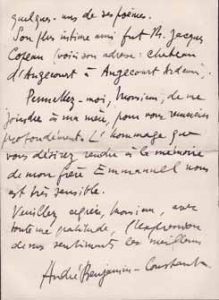 quelques-uns de ses poèmes.
Son plus intime ami fut M. Jacques
Copeau (voici son adresse : château
d'Angecourt à Angecourt Ardennes).
Permettez-moi, Monsieur, de me
joindre à ma mère, pour vous remercier
profondément. L'hommage que
vous désirez rendre à la mémoire
de mon frère Emmanuel nous
est très sensible.
Veuillez agréer, Monsieur, avec
toute ma gratitude, l'expression
de nos sentiments les meilleurs
André Benjamin-Constant